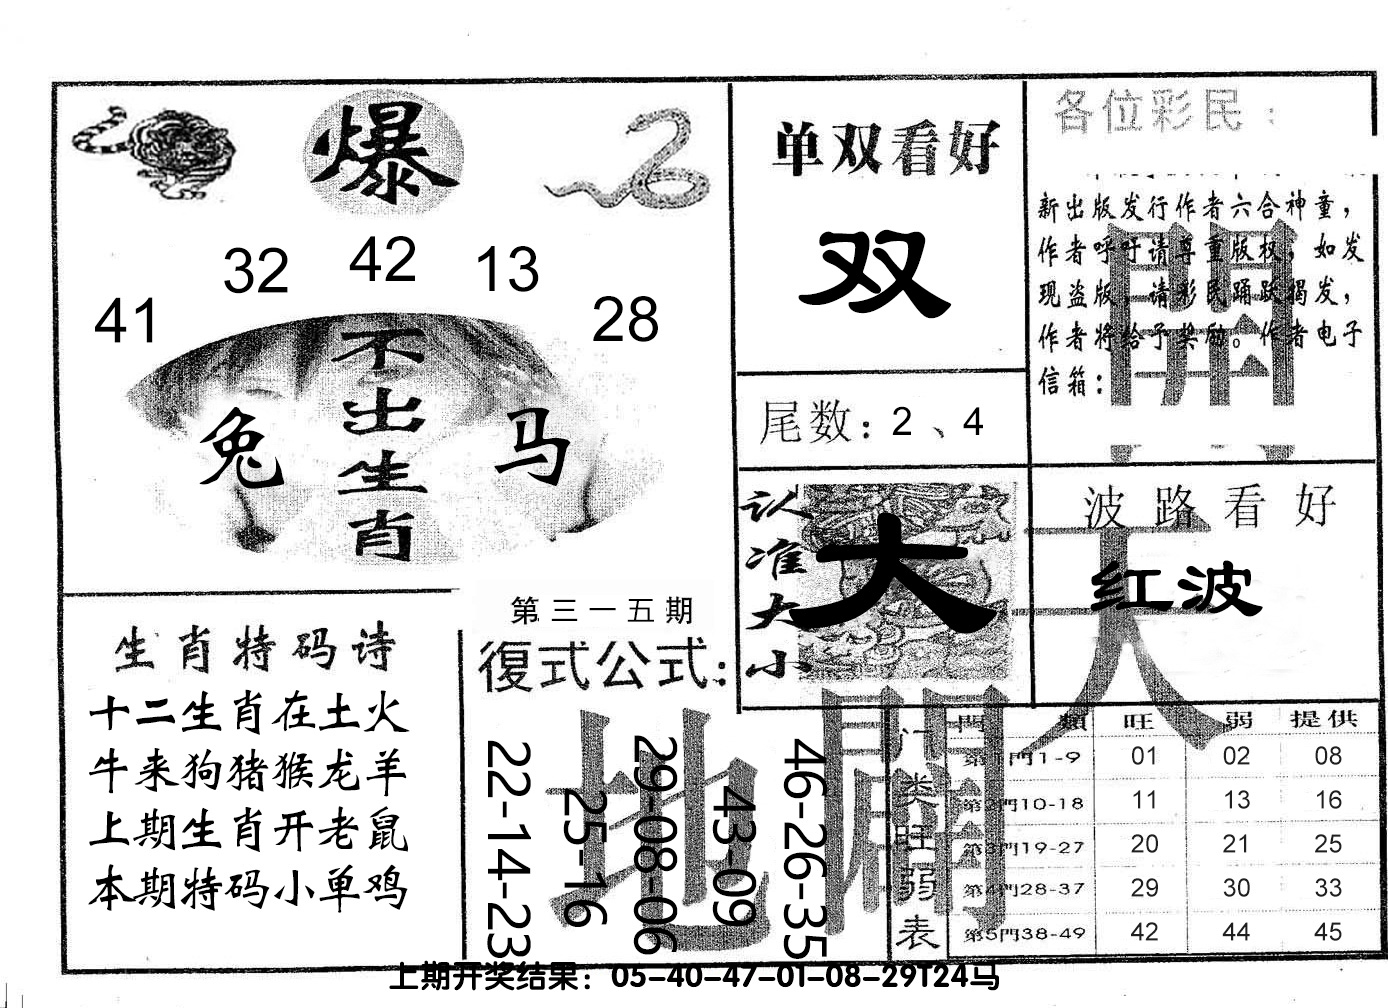 爆
41 32 42 13 28
不出生肖
兔 马
单双看好
双
尾数：2、4
各位彩民：
新出版发行作者六合神童，
作者呼吁请尊重版权，如发
现盗版，请彩民踊跃揭发，
作者将给予奖励。作者电子
信箱：
認准大小
大
波路看好
红波
生肖特码诗
十二生肖在土火
牛来狗猪猴龙羊
上期生肖开老鼠
本期特码小单鸡
第三一五期
復式公式：
22-14-23
25-16
29-08-06
43-09
46-26-35
天
地
開
門类旺弱表
門類 旺 弱 提供
第1門1-9 01 02 08
第2門10-18 11 13 16
第3門19-27 20 21 25
第4門28-37 29 30 33
第5門38-49 42 44 45
上期开奖结果：05-40-47-01-08-29T24马